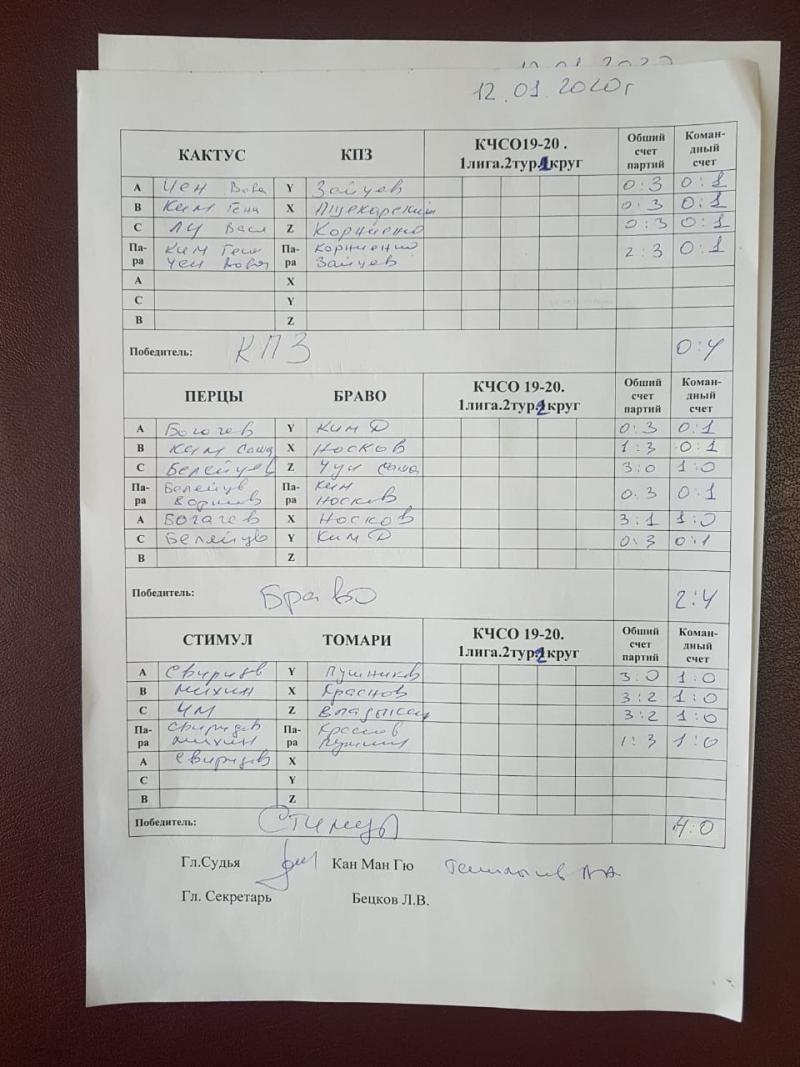 12.01.2020г
КАКТУС КПЗ КЧСО19-20 . 1лига.2тур.1круг Обший счет партий Коман-дный счет
А Чен Вова Y Зайцев 0:3 0:1
В Ким Гена X Пщекарский 0:3 0:1
С Ли Вася Z Корниенко 0:3 0:1
Па-ра Ким Гена Па-ра Корниенко 2:3 0:1
Чен Вова Зайцев
А X
С Y
В Z
Победитель: КПЗ 0:4
ПЕРЦЫ БРАВО КЧСО 19-20. 1лига.2тур.2круг Обший счет партий Коман-дный счет
А Богачев Y Ким Д 0:3 0:1
В Ким Саша X Носков 1:3 0:1
С Белейцев Z Чун Саша 3:0 1:0
Па-ра Белейцев Па-ра Ким 0:3 0:1
Носков
А Богачев X Носков 3:1 1:0
С Белейцев Y Ким Д 0:3 0:1
В Z
Победитель: Браво 2:4
СТИМУЛ ТОМАРИ КЧСО 19-20. 1лига.2тур.2круг Обший счет партий Коман-дный счет
А Свиридов Y Пушников 3:0 1:0
В Михин X Краснов 3:2 1:0
С Им Z 3:2 1:0
Па-ра Свиридов Па-ра Краснов 1:3 1:0
Михин
А Свиридов X
С Y
В Z
Победитель: Стимул 4:0
Гл.Судья Кан Ман Гю
Гл. Секретарь Бецков Л.В.